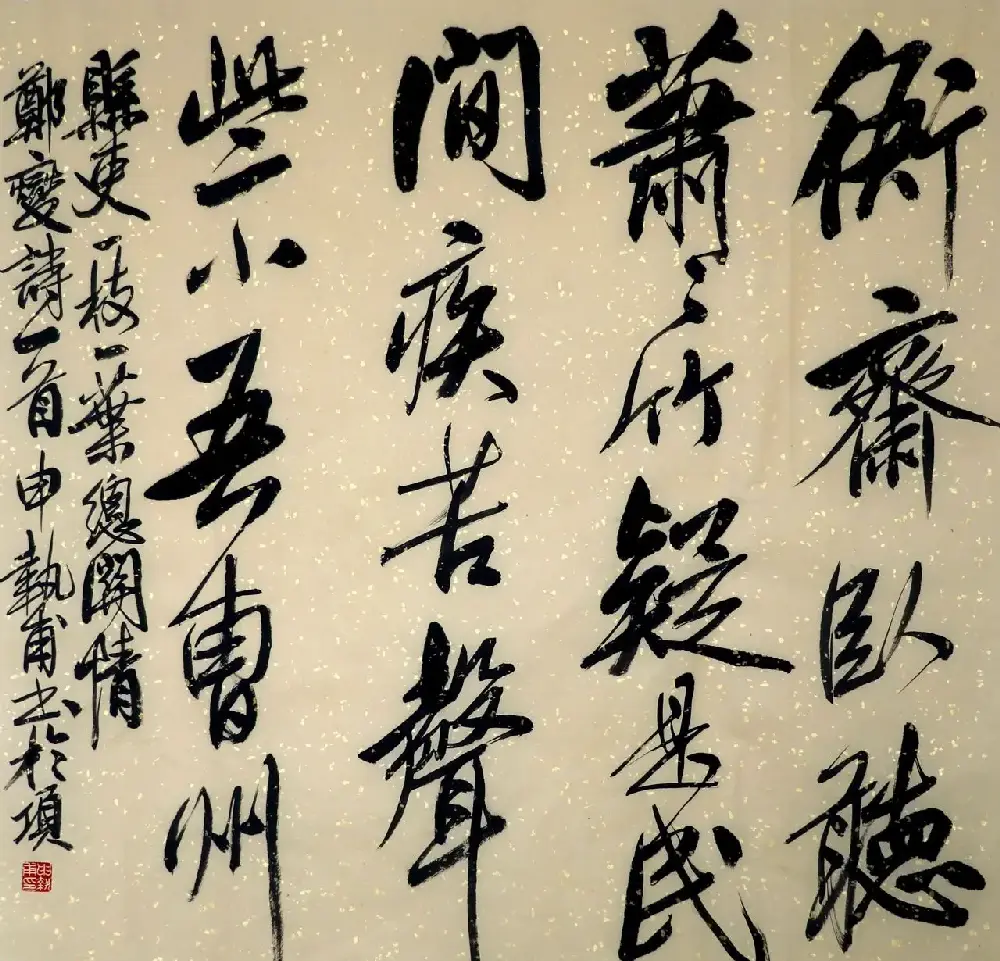 衙齋臥聽
蕭〻竹疑是民
間疾苦聲
些小吾曹州
縣吏一枝一葉總關情
鄭燮詩一首申執甫书於項